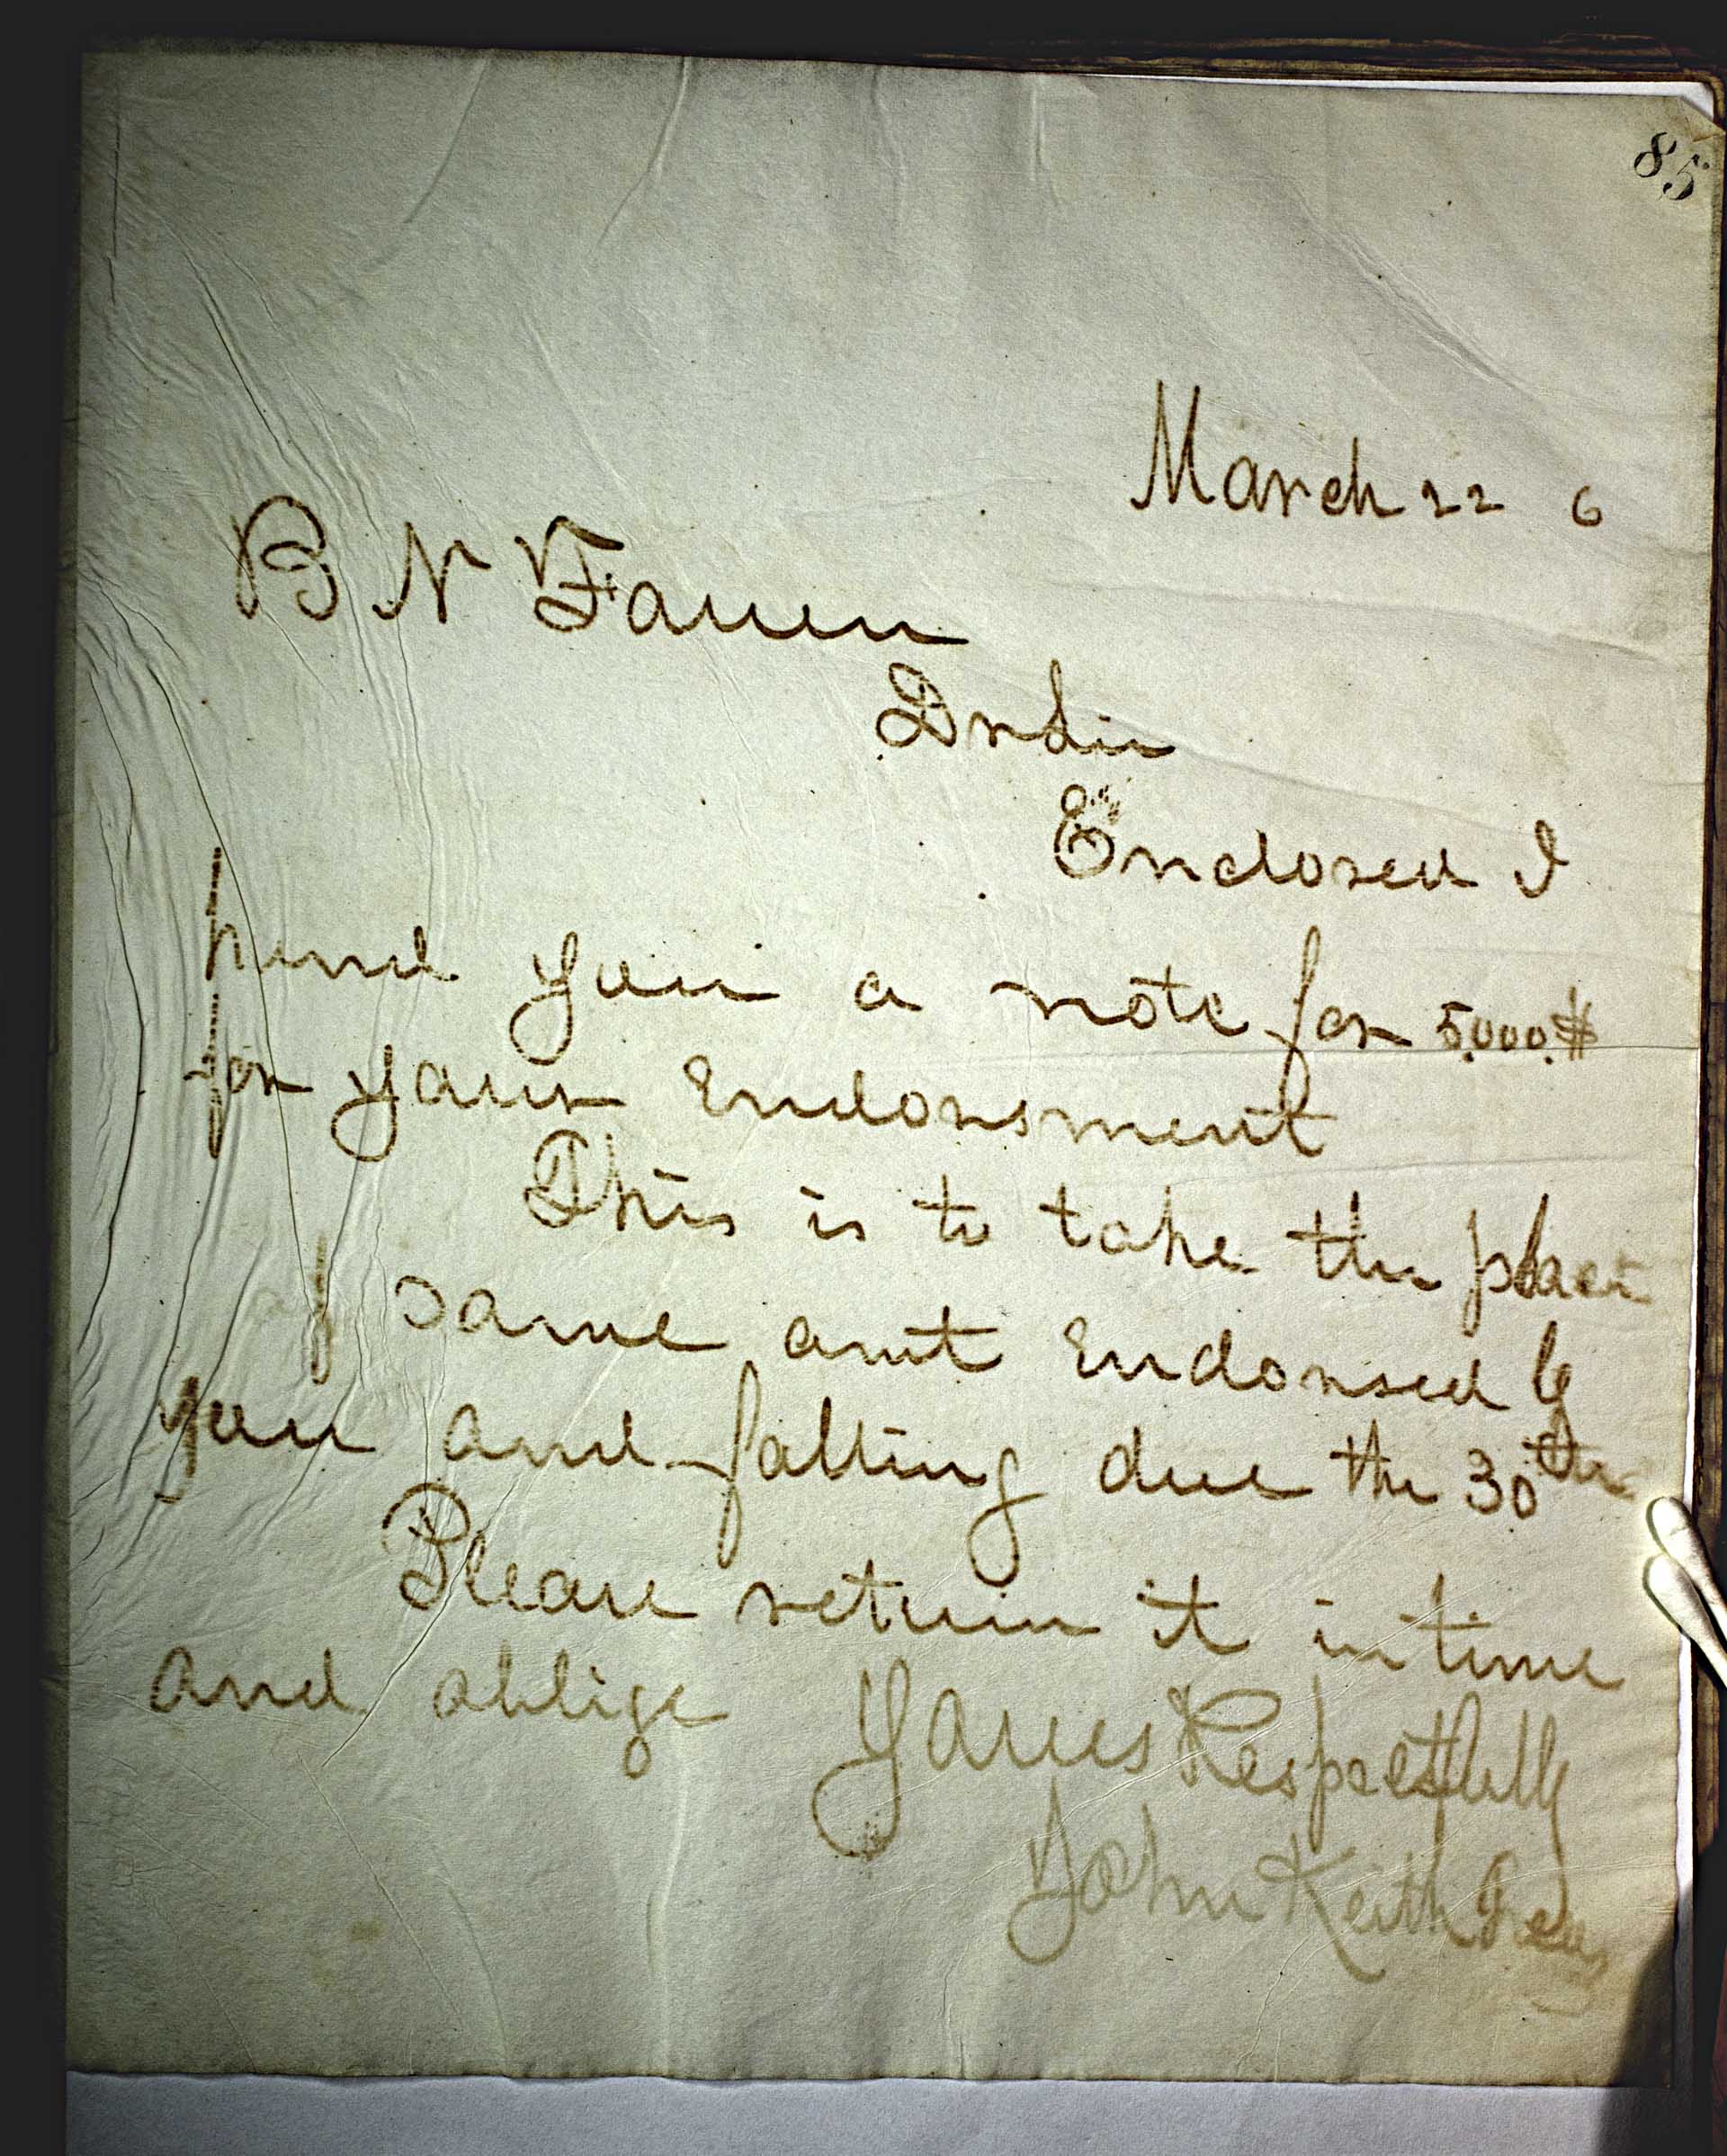 85
March 22 6
B N Farren
Dr Sir
Enclosed I
hand you a note for 5,000.$
for your Endorsment
This is to take the place
of same amt Endorsed by
you and falling due the 30th
Please return it in time
and oblige Yours Respectfully
John Keith